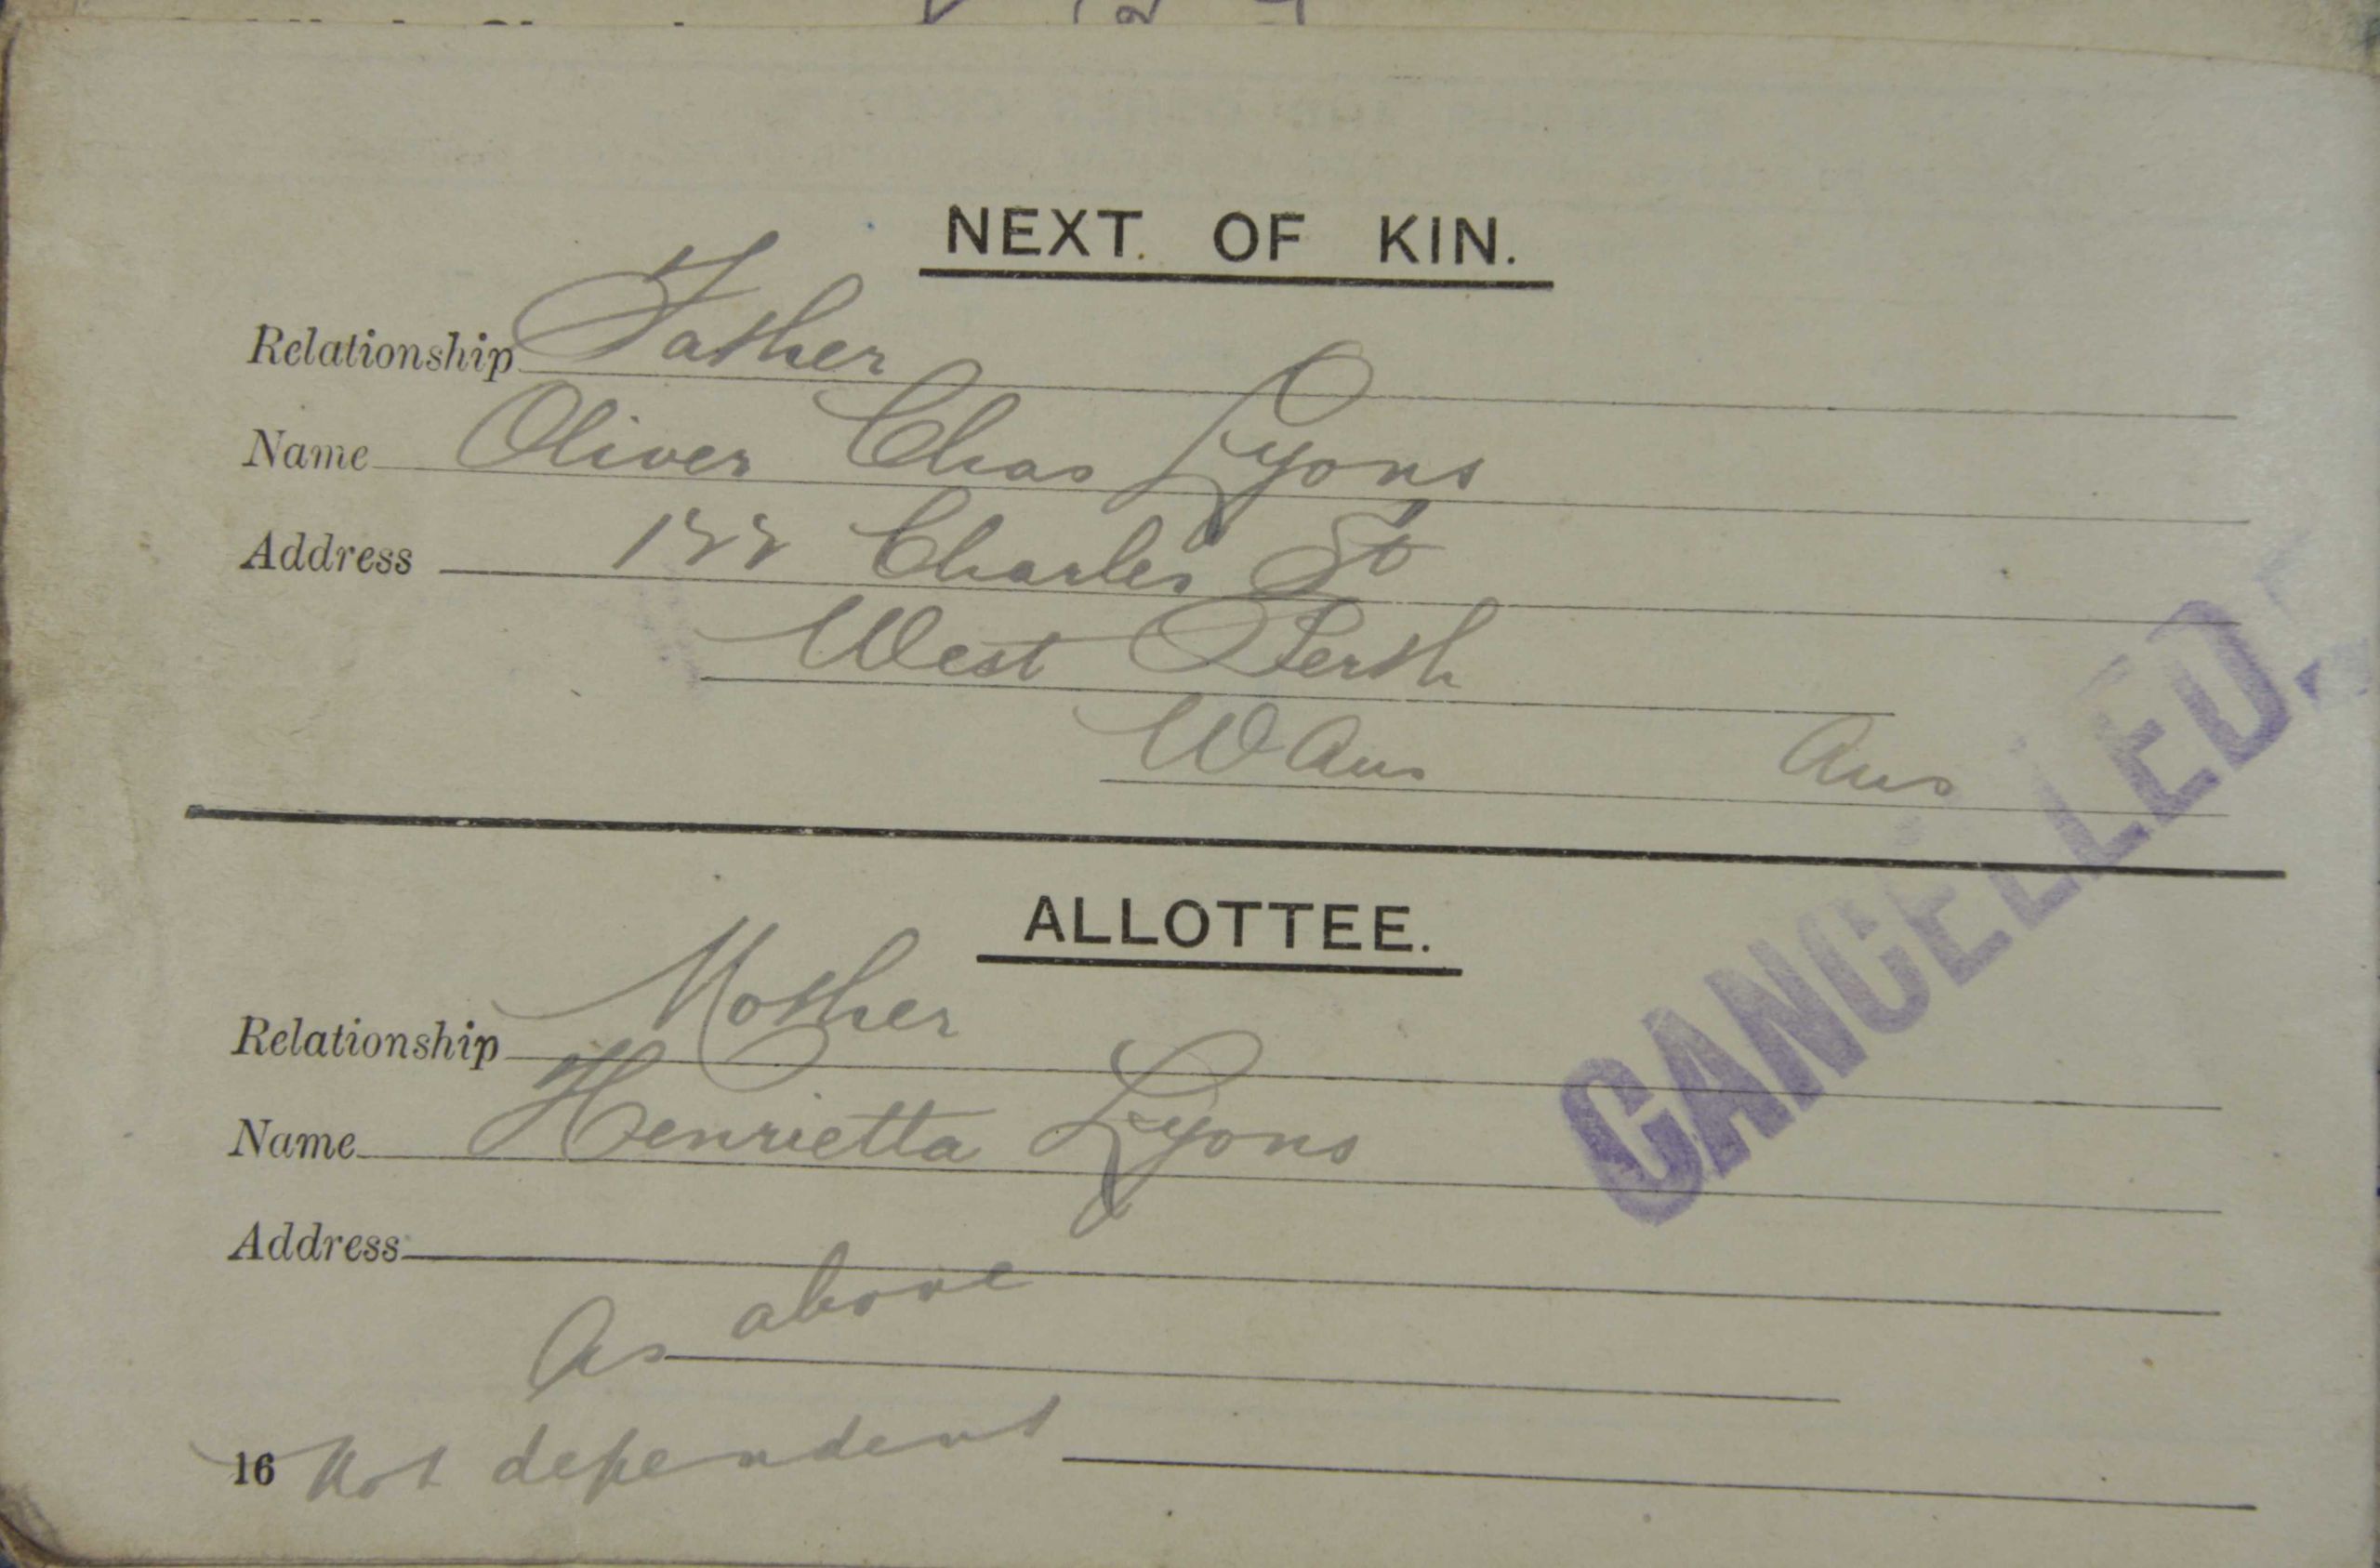 NEXT. OF KIN.
Relationship Father
Name Oliver Chas Lyons
Address 122 Charles St
West Perth
W Aus Aus
ALLOTTEE.
Relationship Mother
Name Henrietta Lyons
Address
As above
16 Not dependent
CANCELLED.